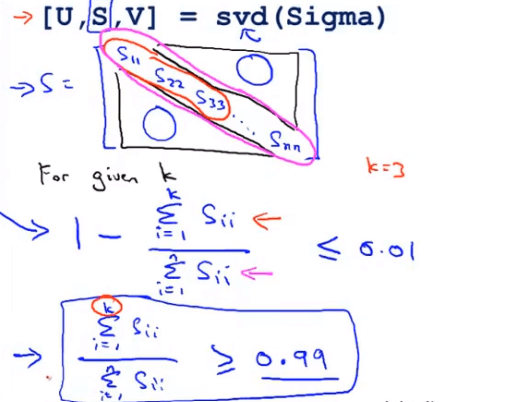 → [U,S,V] = svd(Sigma)
→ S = [S₁₁ S₂₂ S₃₃ ... Sₙₙ]
For given k
k=3
→ 1 - (∑ᵢ₌₁ᵏ Sᵢᵢ ←) / (∑ᵢ₌₁ⁿ Sᵢᵢ ←) ≤ 0.01
→ (∑ᵢ₌₁ᵏ Sᵢᵢ) / (∑ᵢ₌₁ⁿ Sᵢᵢ) ≥ 0.99